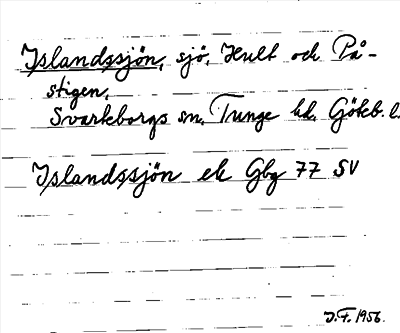 Islandssjön, sjö, Hult och På-
stigen,
Svarteborgs sn. Tunge hd. Göteb. l.
Islandssjön ek Gbg 77 SV
J.F. 1956.